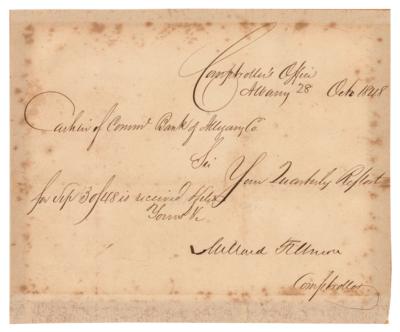 Comptroller's Office
Albany 28 Octo 1848
Cashier of Comml Bank of Allegany Co.
Sir
Your Quarterly Report
for Sep 30/48 is received & filed
Yours &c
Millard Fillmore
Comptroller